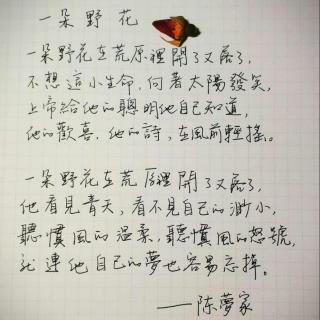 一朵野花
一朵野花在荒原裡開了又落了,
不想這小生命,向著太陽發笑,
上帝給他的聰明他自己知道,
他的歡喜,他的詩,在風前輕搖。
一朵野花在荒原裡開了又落了,
他看見青天,看不見自己的渺小,
聽慣風的溫柔,聽慣風的怒號,
就連他自己的夢也容易忘掉。
——陈夢家